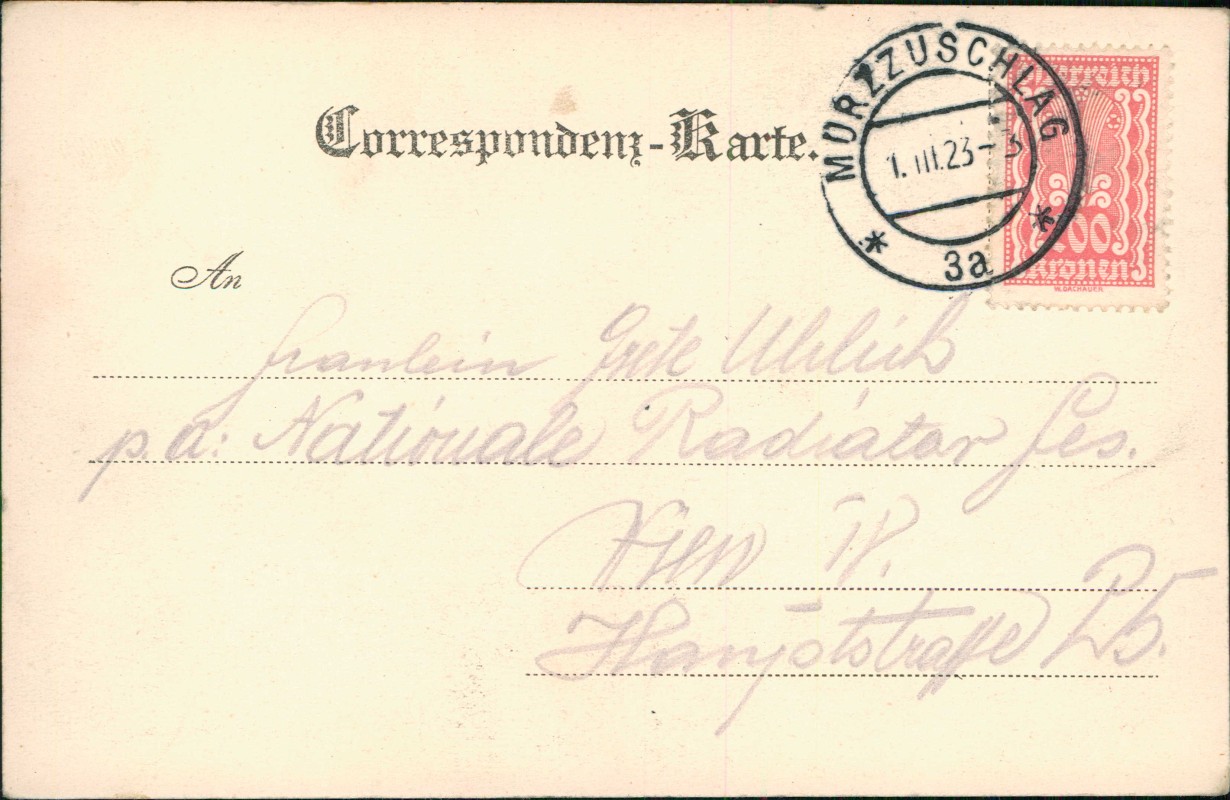 Correspondenz-Karte.
MÜRZZUSCHLAG
1. III. 23
* 3a *
Österreich
Kronen
W. DACHAUER
An
Fraulein Grete Uhlich
p. a: Nationale Radiator Ges.
Wien IV.
Hauptstrasse